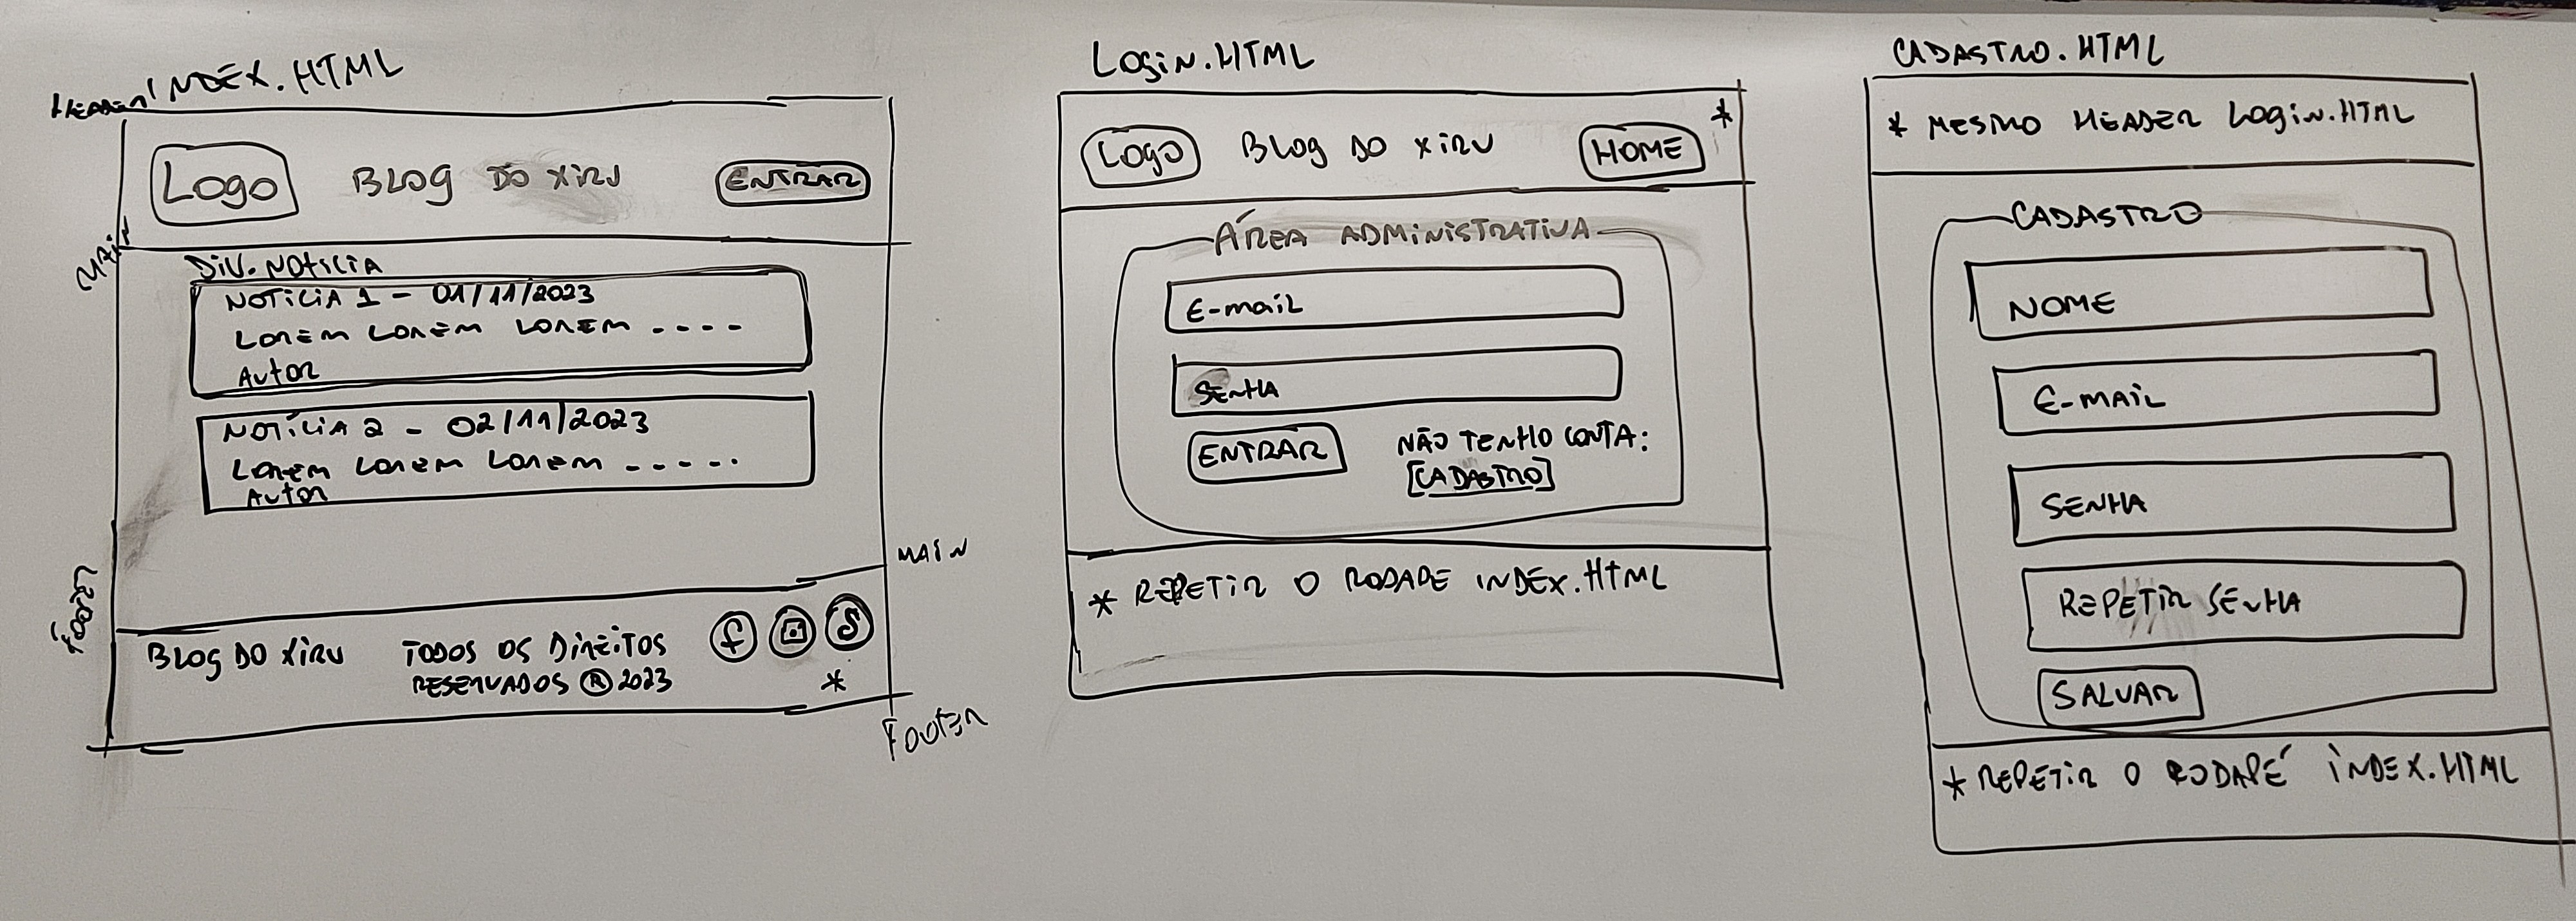 INDEX.HTML
HEADER
Logo BLOG DO XIRU ENTRAR
MAIN
DIV.NOTICIA
NOTICIA 1 - 01/11/2023
LOREM LOREM LOREM ----
AUTOR
NOTÍCIA 2 - 02/11/2023
LOREM LOREM LOREM -----
AUTOR
MAIN
FOOTER
BLOG DO XIRU TODOS OS DIREITOS f S
RESERVADOS ® 2023 *
FOOTER
LOGIN.HTML
*
LOGO BLOG DO XIRU HOME
ÁREA ADMINISTRATIVA
E-MAIL
SENHA
ENTRAR NÃO TENHO CONTA:
[CADASTRO]
* REPETIR O RODAPE INDEX.HTML
CADASTRO.HTML
* MESMO HEADER LOGIN.HTML
CADASTRO
NOME
E-MAIL
SENHA
REPETIR SENHA
SALVAR
* REPETIR O RODAPÉ INDEX.HTML